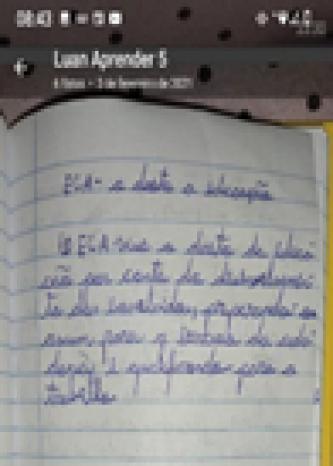 08:43
Luan Aprender 5
4 fotos • 3 de fevereiro de 2021
ECA - o direito a educação
O ECA visa o direito de educa
ção por conta do desenvolvimen
to dos envolvidos, preparando os
assim para o
e qualificando para o
trabalho